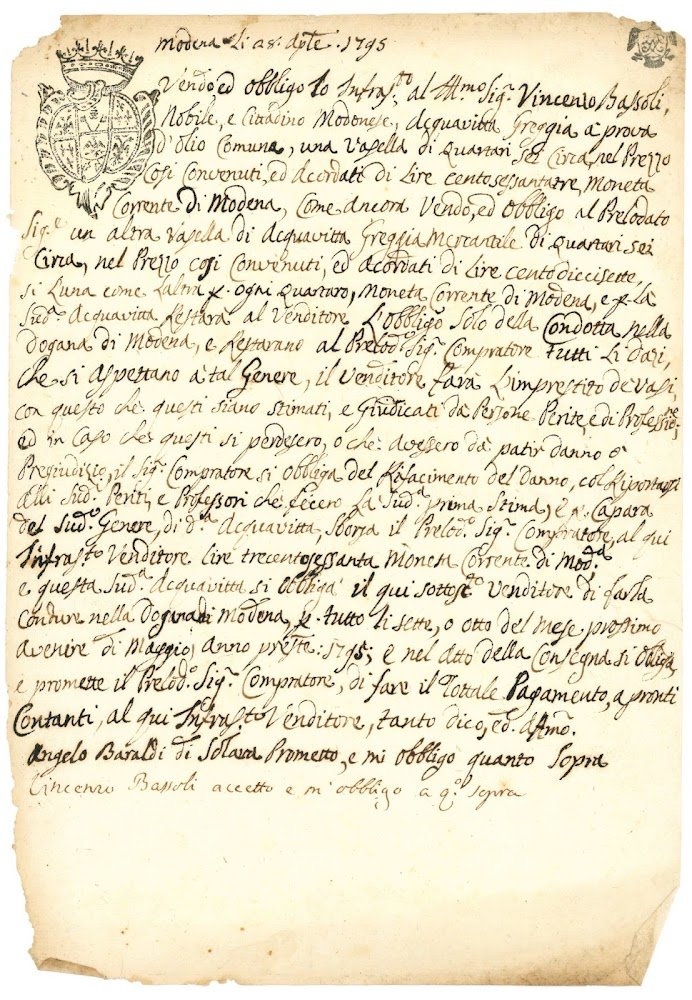 Modena Li 28. Aplẽ. 1795
Vendo ed obbligo Io Infras.to al Ill.mo Sig.r Vincenzo Bassoli,
Nobile, e Cittadino Modonese, Acquavitta Greggia à prova
d'olio Comune, una Vasella di Quartari sei Circa, nel Prezzo
Cosi Convenuti, ed Acordati di Lire centosessantatre, Moneta
Corrente di Modena, Come Ancora Vendo, ed Obbligo al Prelodato
Sig.r un altra Vasella di Acquavitta Greggia Mercantile di quartari sei
Circa, nel Prezzo cosi Convenuti, ed acordati di Lire centodiccisette,
si Luna come Laltra p. ogni Quartaro, Moneta Corrente di Modena, e p. La
Sud.a Acquavitta Restarà al Venditore L'obbligo Solo della Condotta nella
Dogana di Modena, e Restarano al Prelod.o Sig.r Compratore tutti Li Dazi,
che si Aspettano à tal Genere, il Venditore farà L'imprestito de Vasi,
con questo che questi siano stimati, e Giudicati da Persone Perite, e di Professio:
ed in Caso che questi si perdesero, o che avessero da patir danno o
Pregiudizio, il Sig.r Compratore si obbliga del Rifacimento del Danno, col Riportarsi
alli Sud.i Periti, e Professori che fecero La Sud.a prima Stima, e p. Capara
del Sud.o Genere, di d.a Acquavitta, Sborsa il Prelod.o Sig.r Compratore, al qui
Infras.to Venditore Lire trecentosessanta Moneta Corrente di Mod.a
e questa Sud.a Acquavitta si obbliga il qui sottosc.to Venditore di farla
Condure nella Dogana di Modena, p. tutto li sette, o otto del Mese prossimo
avenire di Maggio, anno pres.te: 1795; e nel Atto della Consegna si obbliga
e promette il Prelod.o Sig.r Compratore, di fare il Tottale Pagamento, a pronti
Contanti, al qui Infras.to Venditore, tanto dico, ed. Affmo.
Angelo Baraldi di Solara Prometto, e mi obbligo quanto Sopra
Vincenzo Bassoli accetto e m'obbligo a q.to sopra